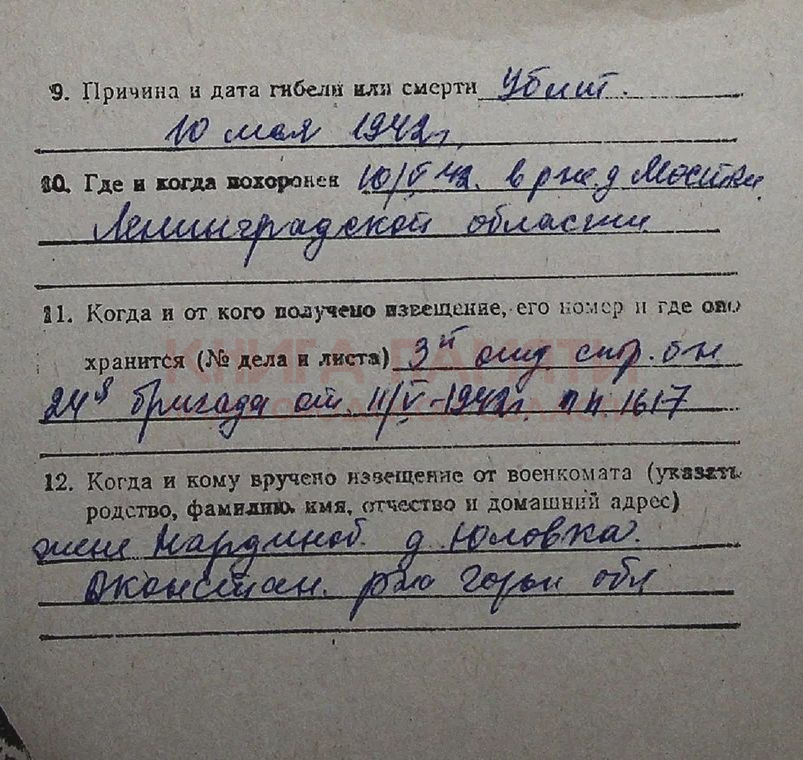 9. Причина и дата гибели или смерти Убит.
10 мая 1942 г.
10. Где и когда похоронен 10/V 42. в р-не д
Ленинградской области
11. Когда и от кого получено извещение, его номер и где оно
хранится (№ дела и листа) 3й отд. стр. б-н
24я бригада от 11/V-1942 г. пп 1617
КНИГА ПАМЯТИ
12. Когда и кому вручено извещение от военкомата (указать
родство, фамилию, имя, отчество и домашний адрес)
жене д. Юловка.
обл